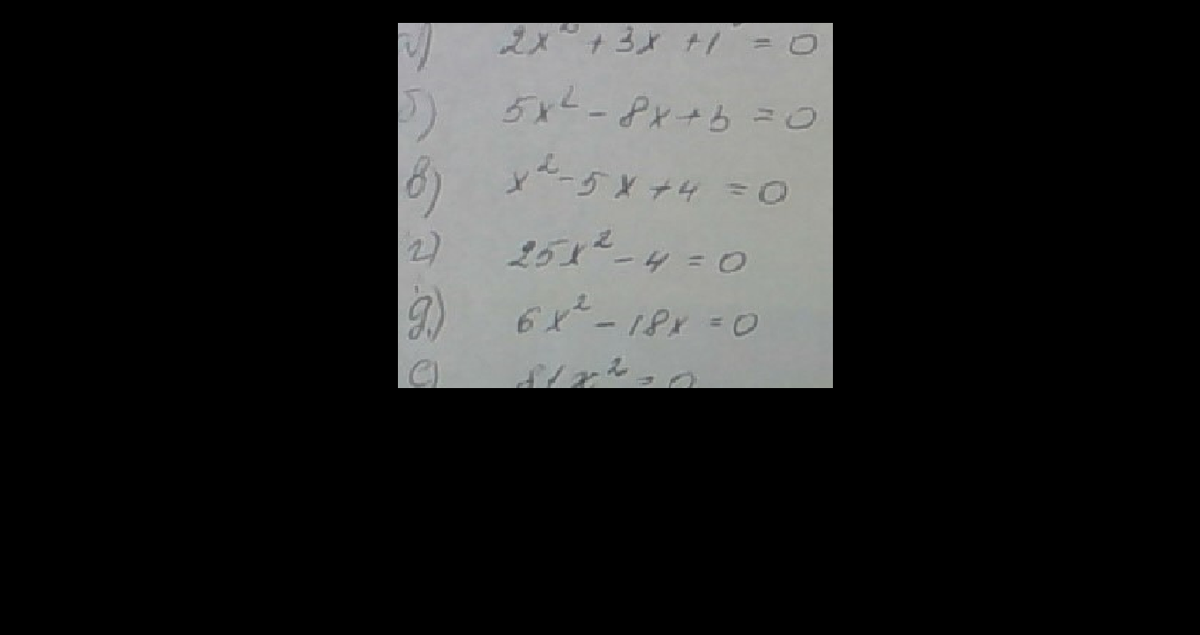 а) 2x² + 3x + 1 = 0
б) 5x² - 8x + 3 = 0
в) x² - 5x + 4 = 0
г) 25x² - 4 = 0
д) 6x² - 18x = 0
е) 81x² = 0